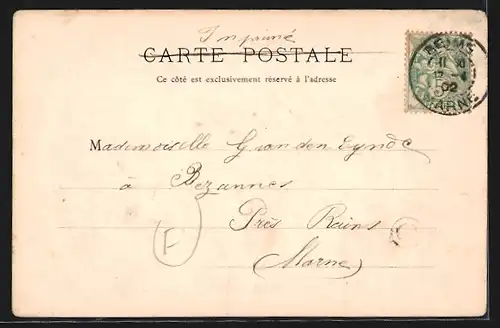 Imprimé
CARTE POSTALE
Ce côté est exclusivement réservé à l'adresse
REIMS
02
MARNE
Mademoiselle G. vanden Eynde
à Bezannes
Près Reims
(Marne)
F